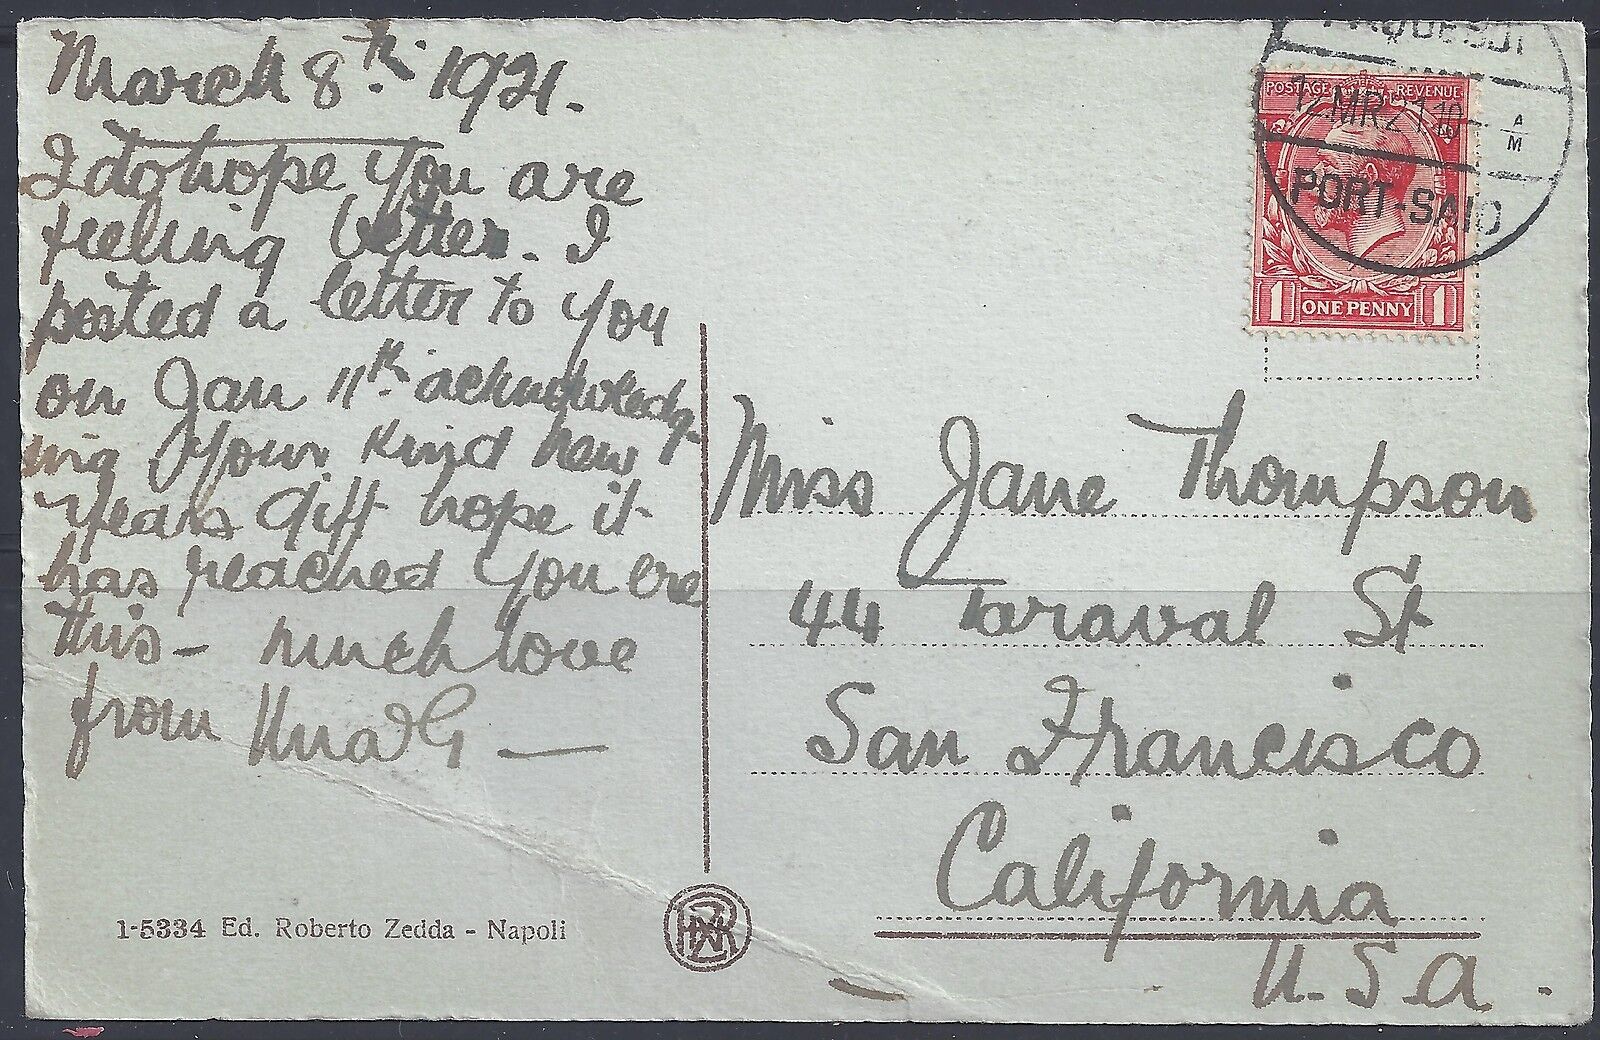 March 8th. 1921.
I do hope you are
feeling better. I
posted a letter to you
on Jan 11th. acknowledg-
ing your kind new
years gift hope it
has reached you ere
this - much love
from
1-5334 Ed. Roberto Zedda - Napoli
PAQUEBOT
12 MR 21.10 - AM
PORT-SAID
POSTAGE REVENUE
1 ONE PENNY 1
Miss Jane Thompson
44 Taraval St
San Francisco
California
U.S.A.